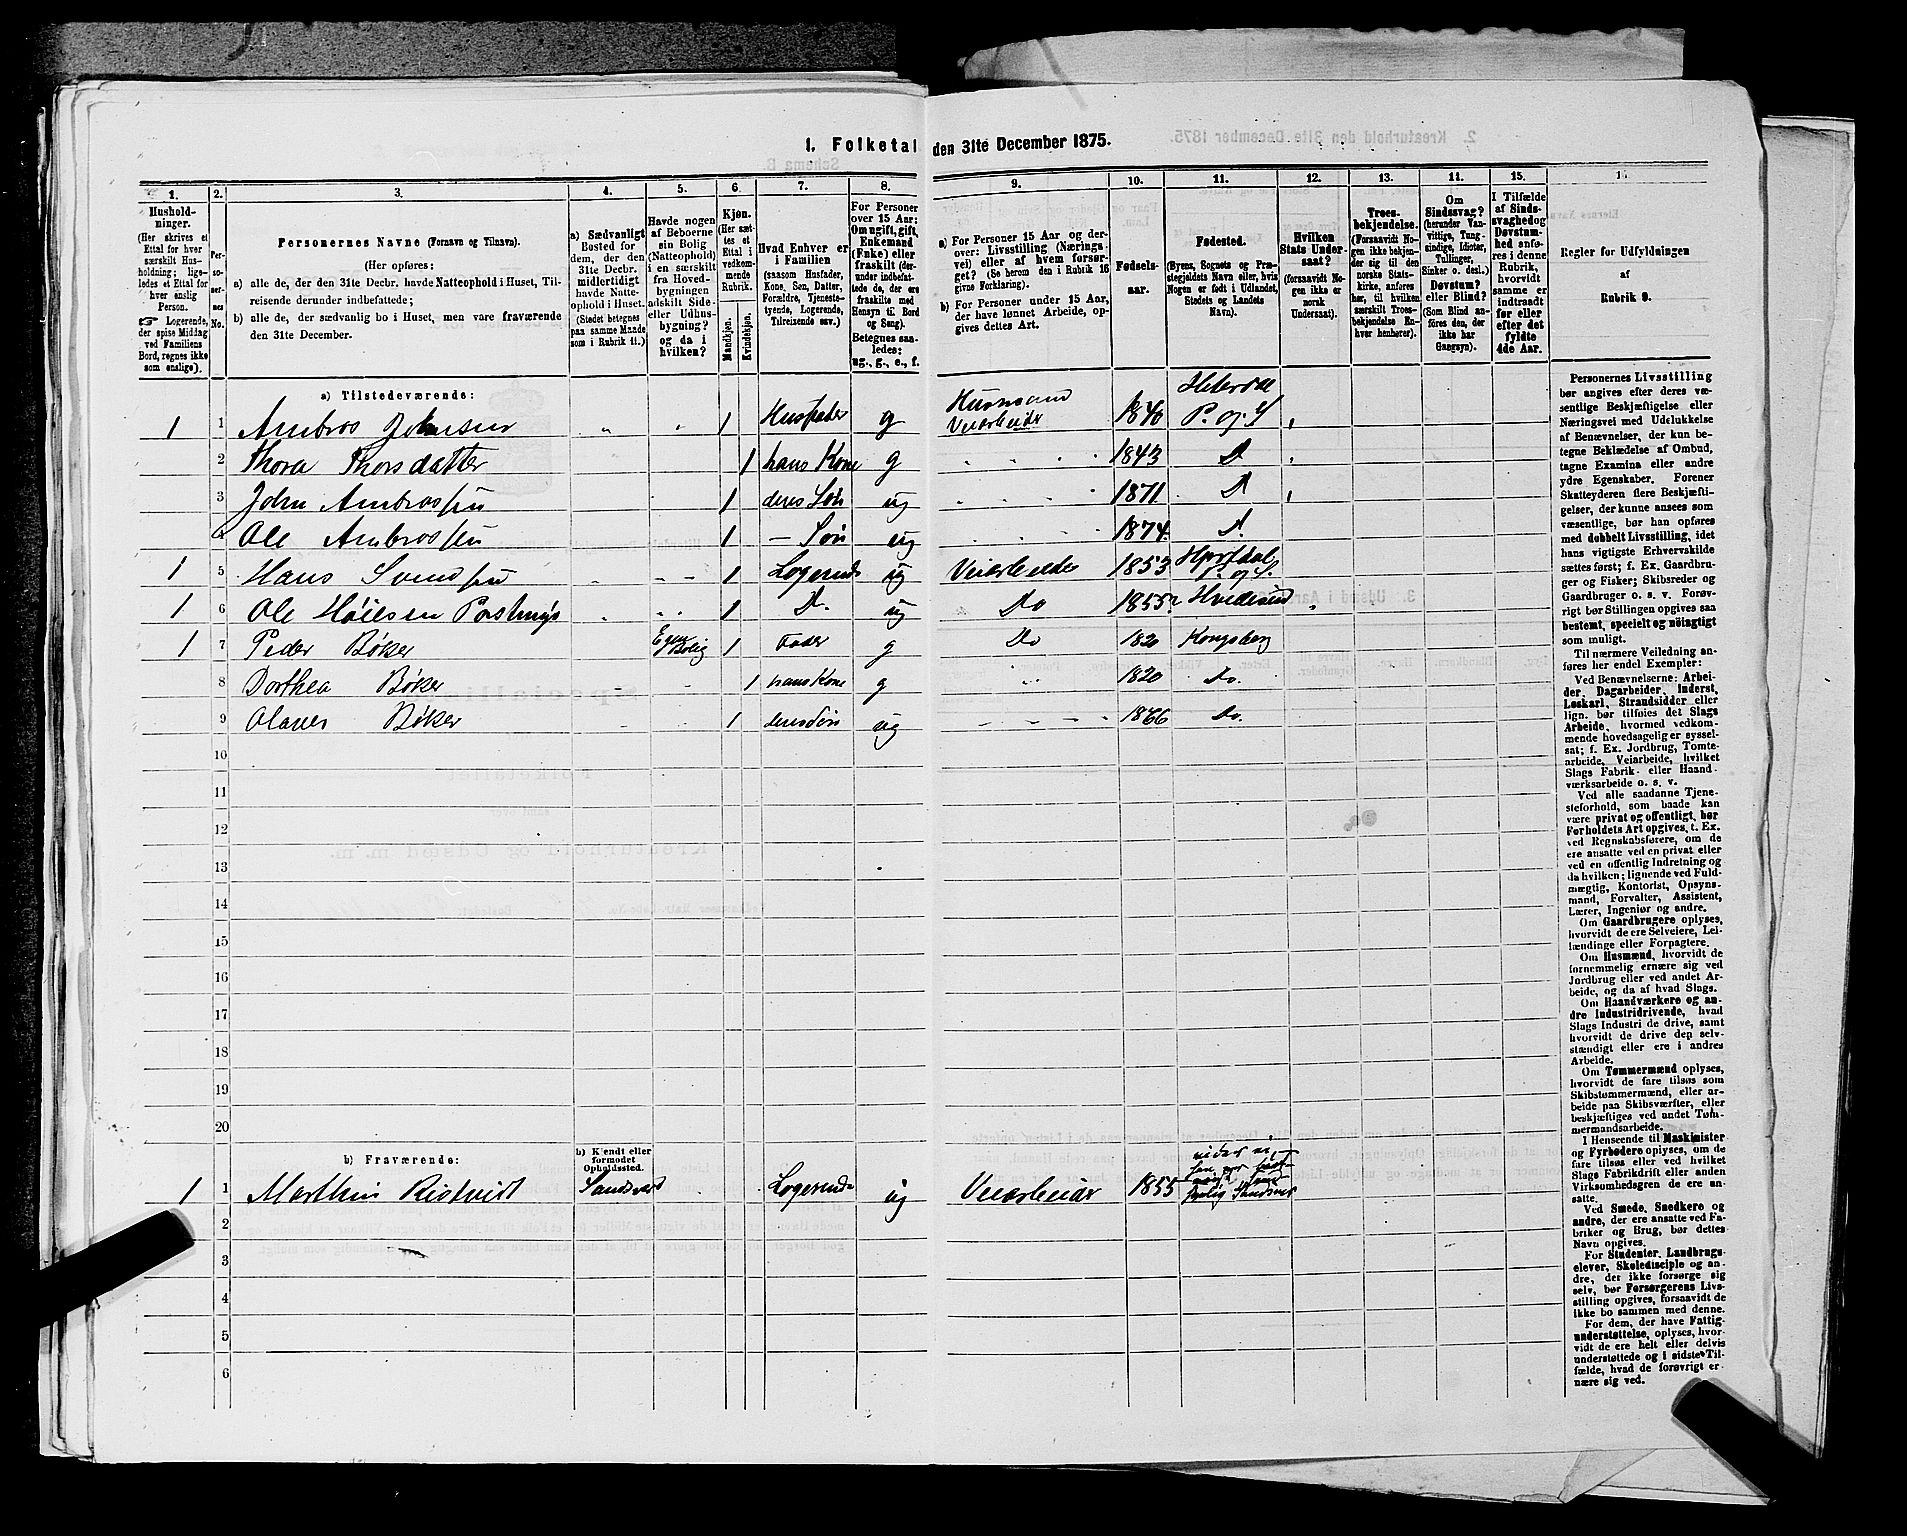 1. Folketal den 31te December 1875.
1. 2. 3. 4. 5. 6. 7. 8. 9. 10. 11. 12. 13. 14. 15. 16
Husholdninger. (Her skrives et Ettal for hver særskilt Husholdning; ligeledes et Ettal for hver enslig Person. ☞ Logerende, der spise Middag ved Familiens Bord, regnes ikke som enslige).
Personernes No.
Personernes Navne (Fornavn og Tilnavn).
(Her opføres:
a) alle de, der den 31te Decbr. havde Natteophold i Huset, Tilreisende derunder indbefattede;
b) alle de, der sædvanlig bo i Huset, men vare fraværende den 31te December.
a) Sædvanligt Bosted for dem, der den 31te Decbr. midlertidigt havde Natteophold i Huset. (Stedet betegnes paa samme Maade som i Rubrik 11.)
Havde nogen af Beboerne sin Bolig (Natteophold) i en særskilt fra Hovedbygningen adskilt Side- eller Udhusbygning? og da i hvilken?
Kjøn. (Her sættes et Ettal i vedkommende Rubrik.
Mandkjøn. Kvindekjøn.
Hvad Enhver er i Familien (saasom Husfader, Kone, Søn, Datter, Forældre, Tjenestetyende, Logerende, Tilreisende osv.)
For Personer over 15 Aar: Om ugift, gift, Enkemand (Enke) eller fraskilt (derunder indbefattede de, der ere fraskilte med Hensyn til Bord og Seng). Betegnes saaledes: ug., g., e., f.
a) For Personer 15 Aar og derover: Livsstilling (Næringsvei) eller af hvem forsørget? (Se herom den i Rubrik 16 givne Forklaring).
b) For Personer under 15 Aar, der have lønnet Arbeide, opgives dettes Art.
Fødselsaar.
Fødested. (Byens, Sognets og Præstegjeldets Navn eller, hvis Nogen er født i Udlandet, Stedets og Landets Navn).
Hvilken Stats Undersaat? (forsaavidt Nogen ikke er norsk Undersaat).
Troesbekjendelse. (Forsaavidt Nogen ikke bekjender sig til den norske Statskirke, anføres her, til hvilken særskilt Troesbekjendelse Enhver henhører).
Om Sindssvag? (herunder Vanvittige, Tungsindige, Idioter, Tullinger, Sinker o. desl.) Døvstum? eller Blind? (Som Blind anføres den, der ikke har Gangsyn).
I Tilfælde af Sindssvaghed og Døvstumhed anføres i denne Rubrik, hvorvidt samme er indtraadt før eller efter det fyldte 4de Aar.
Regler for Udfyldningen af Rubrik 9.
a) Tilstedeværende:
1 1 Ambros Johnsen 1 Husfader g Husmand Veiarbeider 1840 P. og S
2 Thora Thorsdatter 1 hans Kone g 1843 D
3 John Ambrossen 1 deres Søn ug 1871 D
4 Ole Ambrossen 1 – Søn ug 1874. D.
1 5 Hans Svendsen 1 Logerende ug Veiarbeider 1853 Hjertdal P. og S.
1 6 Ole Høilsen 1 D. ug Do 1855 Hvideseid
1 7 Peder Bøker Egen Bolig 1 Fader g Do 1820 Kongsberg
8 Dorthea Bøker 1 hans Kone g 1820 Do.
9 Olaves Bøker 1 deres Søn ug 1866 Do.
10
11
12
13
14
15
16
17
18
19
20
b) Fraværende: b) Kjendt eller formodet Opholdssted.
1 1 Marthin Logerende ug Veiarbeider 1855
2
3
4
5
6
Personernes Livsstilling
bør angives efter deres væ-
sentlige Beskjæftigelse eller
Næringsvei med Udelukkelse
af Benævnelser, der kun be-
tegne Beklædelse af Ombud,
tagne Examina eller andre
ydre Egenskaber. Forener
Skatteyderen flere Beskjæfti-
gelser, der kunne ansees som
væsentlige, bør han opføres
med dobbelt Livsstilling, idet
hans vigtigste Erhvervskilde
sættes først; f. Ex. Gaardbru-
ger og Fisker; Skibsreder og
Gaardbruger o. s. v. Forøv-
rigt bør Stillingen opgives saa
bestemt, specielt og nøiagtigt
som muligt.
Til nærmere Veiledning an-
føres her endel Exempler:
Ved Benævnelserne: Arbei-
der, Dagarbeider, Inderst,
Løskarl, Strandsidder eller
lign. bør tilføies det Slags
Arbeide, hvormed vedkom-
mende hovedsagelig er syssel-
sat; f. Ex. Jordbrug, Tomte-
arbeide, Veiarbeide, hvilket
Slags Fabrik- eller Haand-
værksarbeide o. s. v.
Ved alle saadanne Tjene-
steforhold, som baade kan
være privat og offentligt, bør
Forholdets Art opgives, t. Ex.
ved Regnskabsførere, om de
ere ansatte ved en privat eller
ved en offentlig Indretning og
da hvilken; lignende ved Fuld-
mægtig, Kontorist, Opsyns-
mand, Forvalter, Assistent,
Lærer, Ingeniør og andre.
Om Gaardbrugere oplyses,
hvorvidt de ere Selveiere, Lei-
lændinge eller Forpagtere.
Om Husmænd, hvorvidt de
fornemmelig ernære sig ved
Jordbrug eller ved andet Ar-
beide, og da af hvad Slags.
Om Haandværkere og an-
dre Industridrivende, hvad
Slags Industri de drive, samt
hvorvidt de drive den selv-
stændigt eller ere i andres
Arbeide.
Om Tømmermænd oplyses,
hvorvidt de fare tilsøs som
Skibstømmermænd, eller ar-
beide paa Skibsværfter, eller
beskjæftiges ved andet Tøm-
mermandsarbeide.
I Henseende til Maskinister
og Fyrbødere oplyses, om de
fare tilsøs eller ved hvilket
Slags Fabrikdrift eller anden
Virksomhedsgren de ere an-
satte.
Ved Smede, Snedkere og
andre, der ere ansatte ved Fa-
briker og Brug, bør dettes
Navn opgives.
For Studenter, Landbrugs-
elever, Skoledisciple og an-
dre, der ikke forsørge sig
selv, bør Forsørgerens Livs-
stilling opgives, forsaavidt de
ikke bo sammen med denne.
For dem, der have Fattig-
understøttelse, oplyses, hvor-
vidt de ere helt eller delvis
understøttede og i sidste Til-
fælde, hvad de forøvrigt er-
nære sig ved.